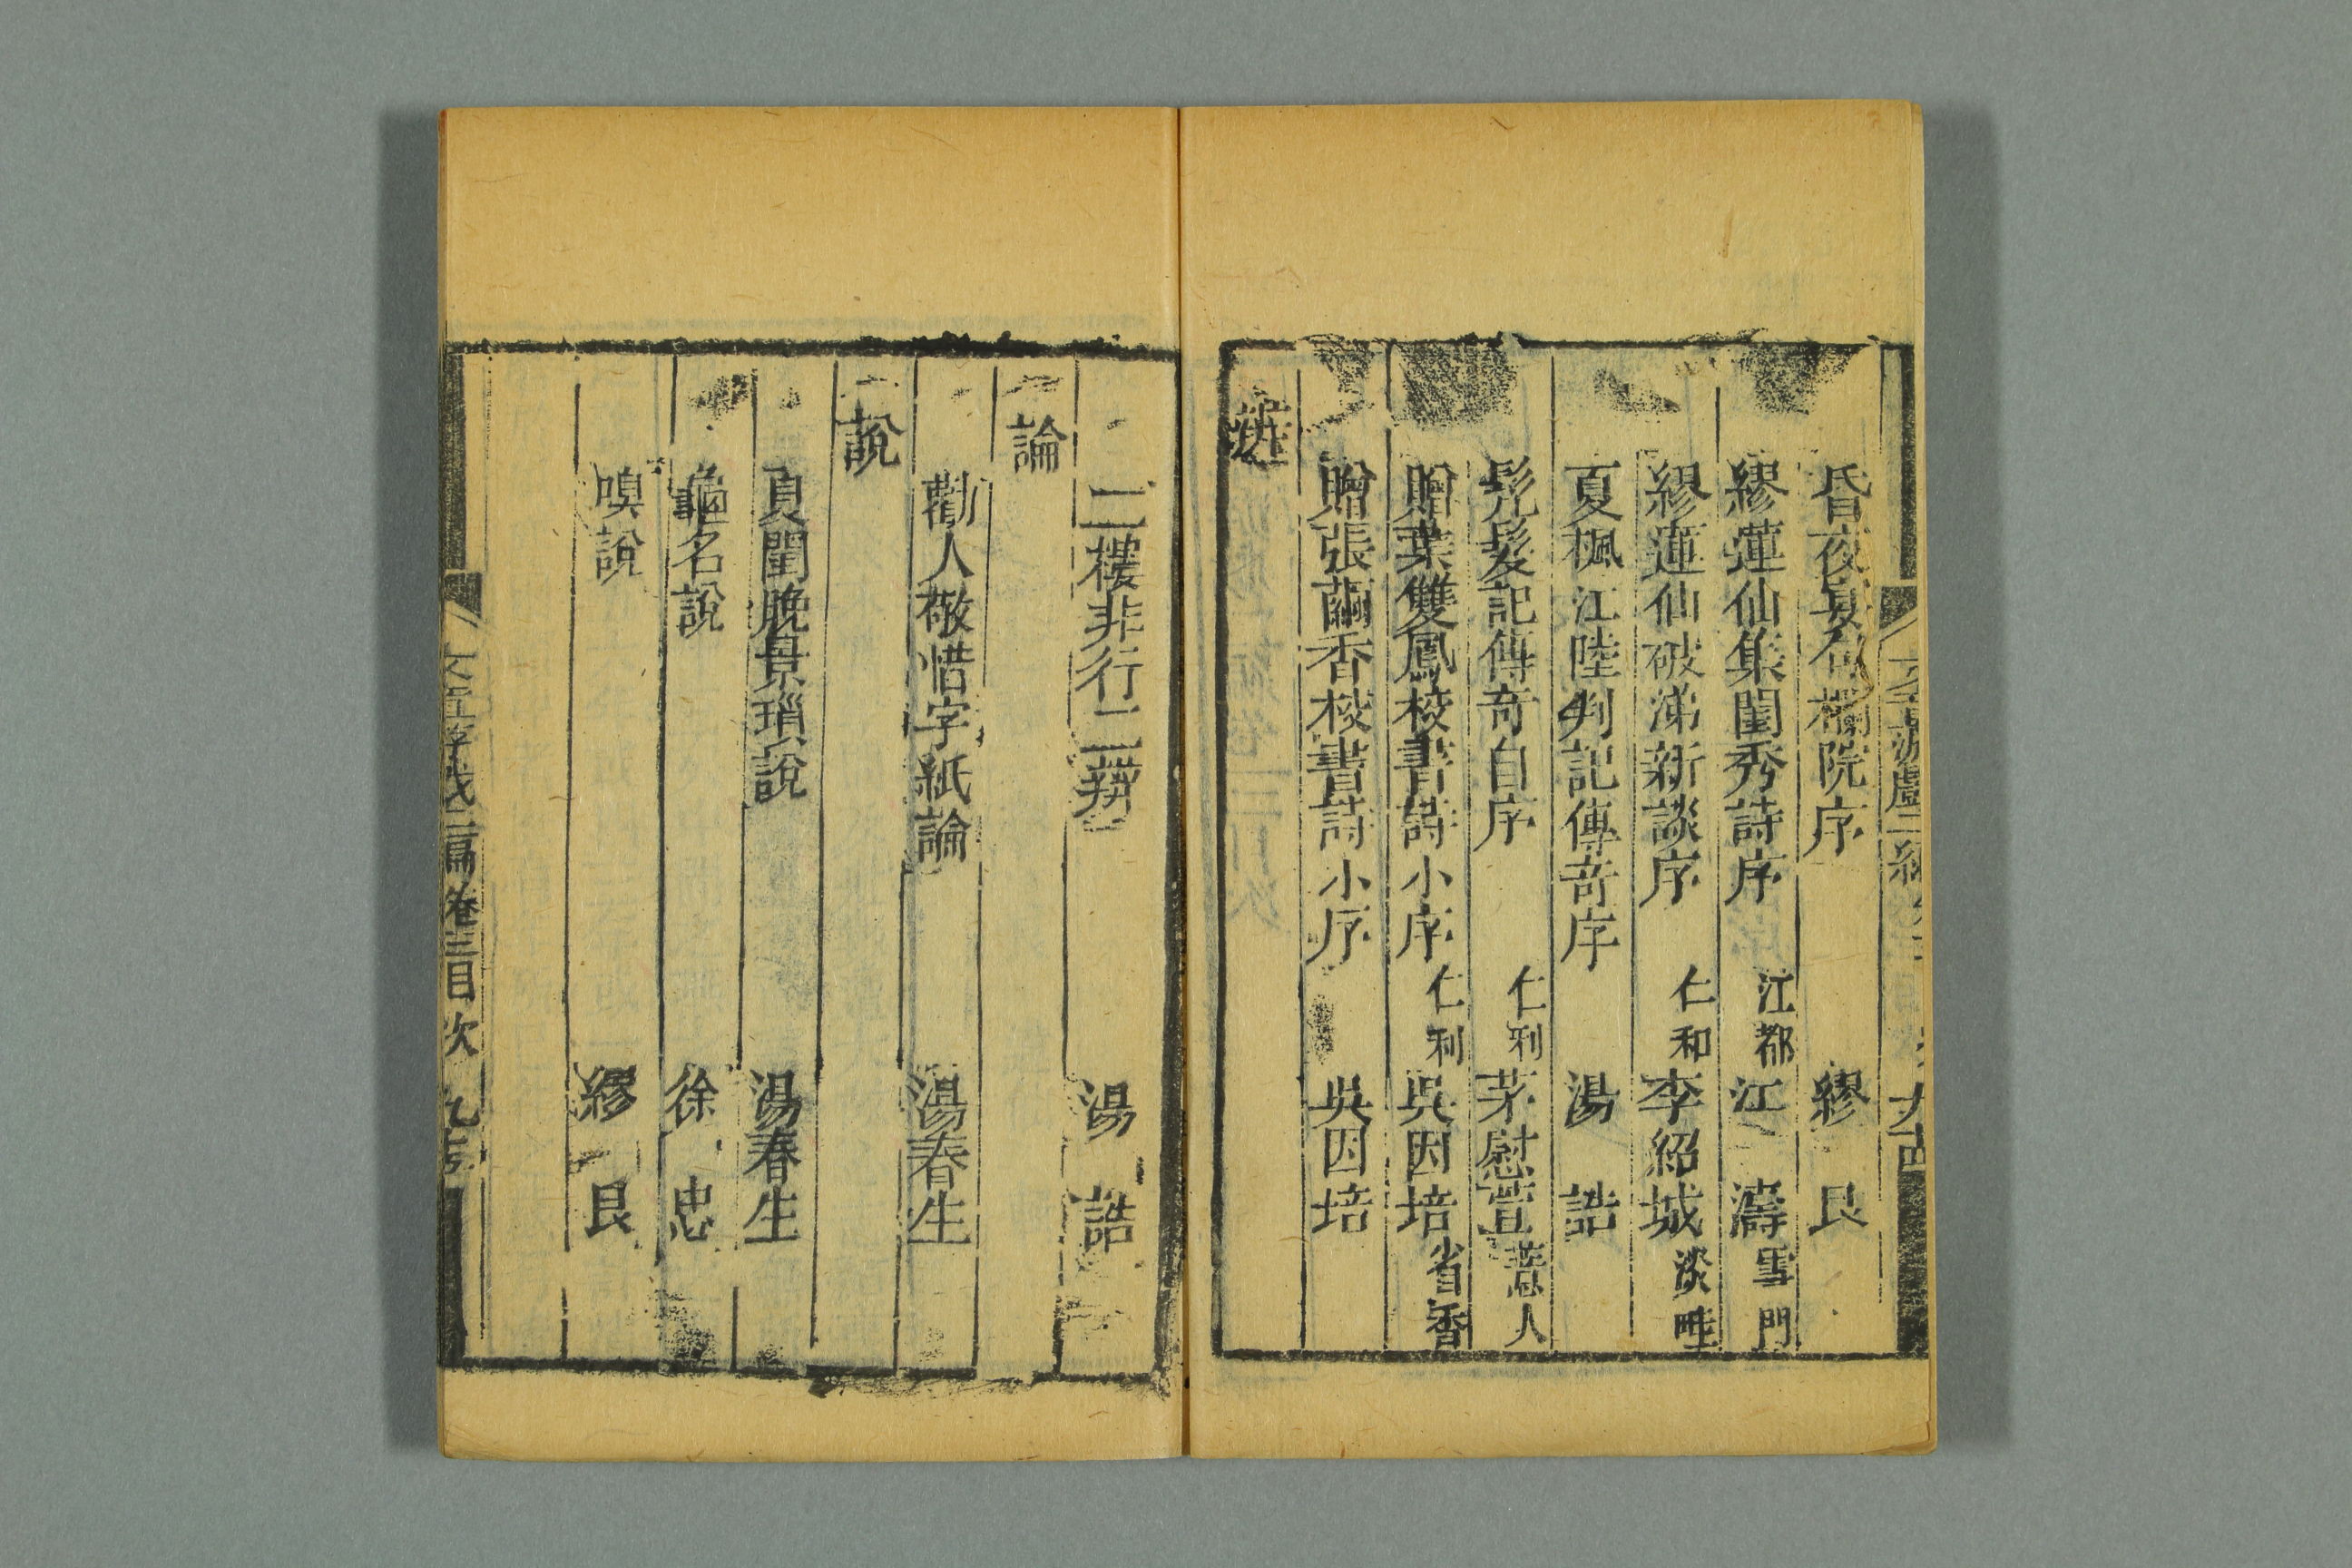 昏夜宴 櫊院序 繆艮
繆蓮仙集閨秀詩序 江都 江濤 雪門
繆蓮仙破涕新談序 仁和 李紹城 淡畦
夏楓江陸判記傳奇序 湯誥
髠髮記傳奇自序 仁和 茅慰萱 人
贈葉雙鳳校書詩小序 仁和 吳因培 省香
贈張蘭香校書詩小序 吳因培
二樓非行二辨 湯誥
論
勸人敬惜字紙論 湯春生
說
貞閨晚景瑣說 湯春生
龜名說 徐忠
嗅說 繆艮
文章游戲二編卷三目次